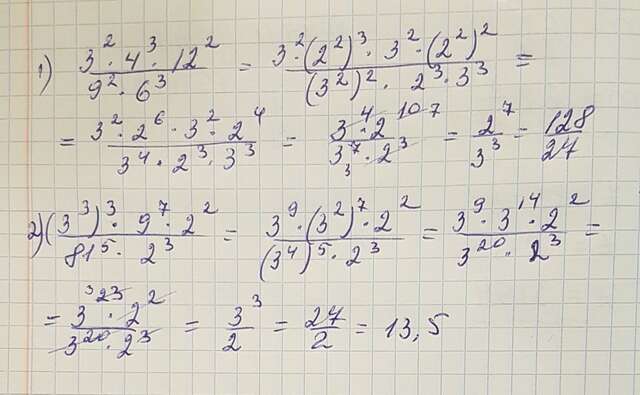 1) (3² · 4³ · 12²)/(9² · 6³) = (3² · (2²)³ · 3² · (2²)²)/((3²)² · 2³ · 3³) =
= (3² · 2⁶ · 3² · 2⁴)/(3⁴ · 2³ · 3³) = (3⁴ · 2¹⁰ ⁷)/(3⁷ ₃ · 2³) = 2⁷/3³ = 128/27
2) ((3³)³ · 9⁷ · 2²)/(81⁵ · 2³) = (3⁹ · (3²)⁷ · 2²)/((3⁴)⁵ · 2³) = (3⁹ · 3¹⁴ · 2²)/(3²⁰ · 2³) =
= (3³ ²³ · 2²)/(3²⁰ · 2³) = 3³/2 = 27/2 = 13,5